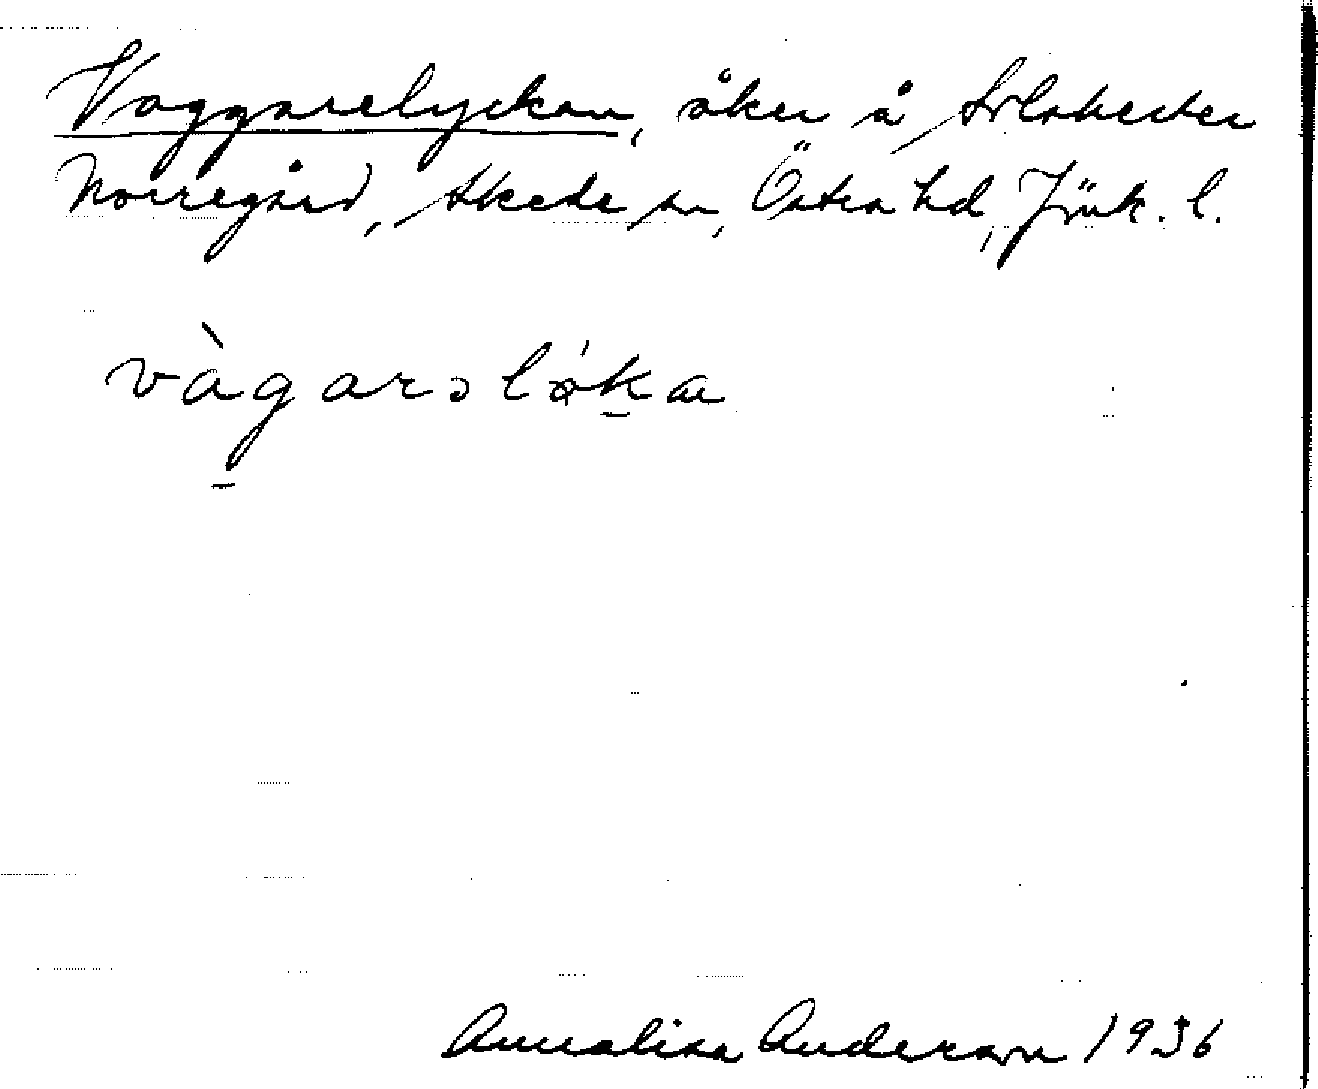 Vaggarelyckan, åker å Solabester
Norregård, Skede sn, Östra hd, Jönk. l.
vàgarəlǿka
Annalisa Anderson 1936